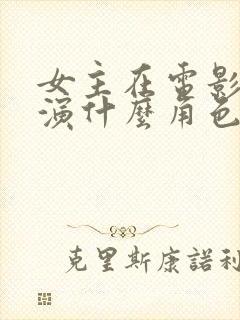 女主在電影
演什麼角色
克里斯康諾利